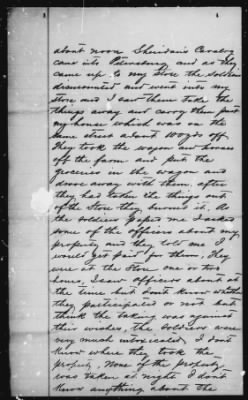 about noon Sheridan's Cavalry
came into Petersburg and as they
came up to my Store the soldiers
dismounted and went into my
Store and I saw them take the
things away and carry them past
my house which was on the
same street about 100 yds off.
They took the wagon and horses
off the farm and put the
groceries in the wagon and
drove away with them. after
they had taken the things out
of the Store they burned it. As
the soldiers passed me I asked
some of the officers about my
property and they told me I
would get paid for them. They
were at the Store one or two
hours, I saw officers about at
the time but I dont know whether
they participated or not but
think the taking was against
their wishes, the soldiers were
very much intoxicated. I dont
know where they took the
property. None of the property
was taken at night I dont
know anything about the